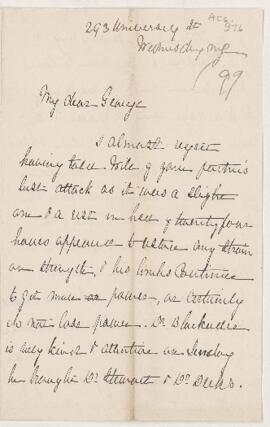 293 University St
Acc. 396
Wednesday mg
/99
My dear George
I almost regret
having told Wife of your father's
last attack as it was a slight
one & a rest in bed of twenty four
hours appeared to restore any strain
on strength, & his limbs continue
to get more power, or certainly
do not lose power. Dr Blackader
is very kind & attentive on Sunday
he brought Dr Stewart & Dr Deeks.